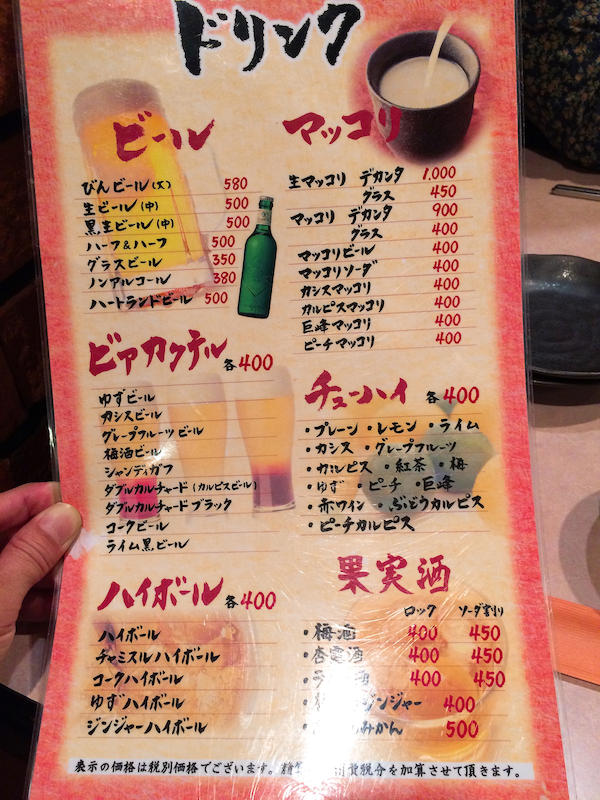 ドリンク
ビール
びんビール(大) 580
生ビール(中) 500
黒生ビール(中) 500
ハーフ&ハーフ 500
グラスビール 350
ノンアルコール 380
ハートランドビール 500
マッコリ
生マッコリ デカンタ 1,000
グラス 450
マッコリ デカンタ 900
グラス 400
マッコリビール 400
マッコリソーダ 400
カシスマッコリ 400
カルピスマッコリ 400
巨峰マッコリ 400
ピーチマッコリ 400
ビアカクテル 各400
ゆずビール
カシスビール
グレープフルーツビール
梅酒ビール
シャンディガフ
ダブルカルチャード(カルピスビール)
ダブルカルチャードブラック
コークビール
ライム黒ビール
チューハイ 各400
・プレーン ・レモン ・ライム
・カシス ・グレープフルーツ
・カルピス ・紅茶 ・梅
・ゆず ・ピーチ ・巨峰
・赤ワイン ・ぶどうカルピス
・ピーチカルピス
ハイボール 各400
ハイボール
チャミスルハイボール
コークハイボール
ゆずハイボール
ジンジャーハイボール
果実酒
ロック ソーダ割り
・梅酒 400 450
・杏露酒 400 450
酒 400 450
ジンジャー 400
みかん 500
表示の価格は税別価格でございます。 費税分を加算させて頂きます。